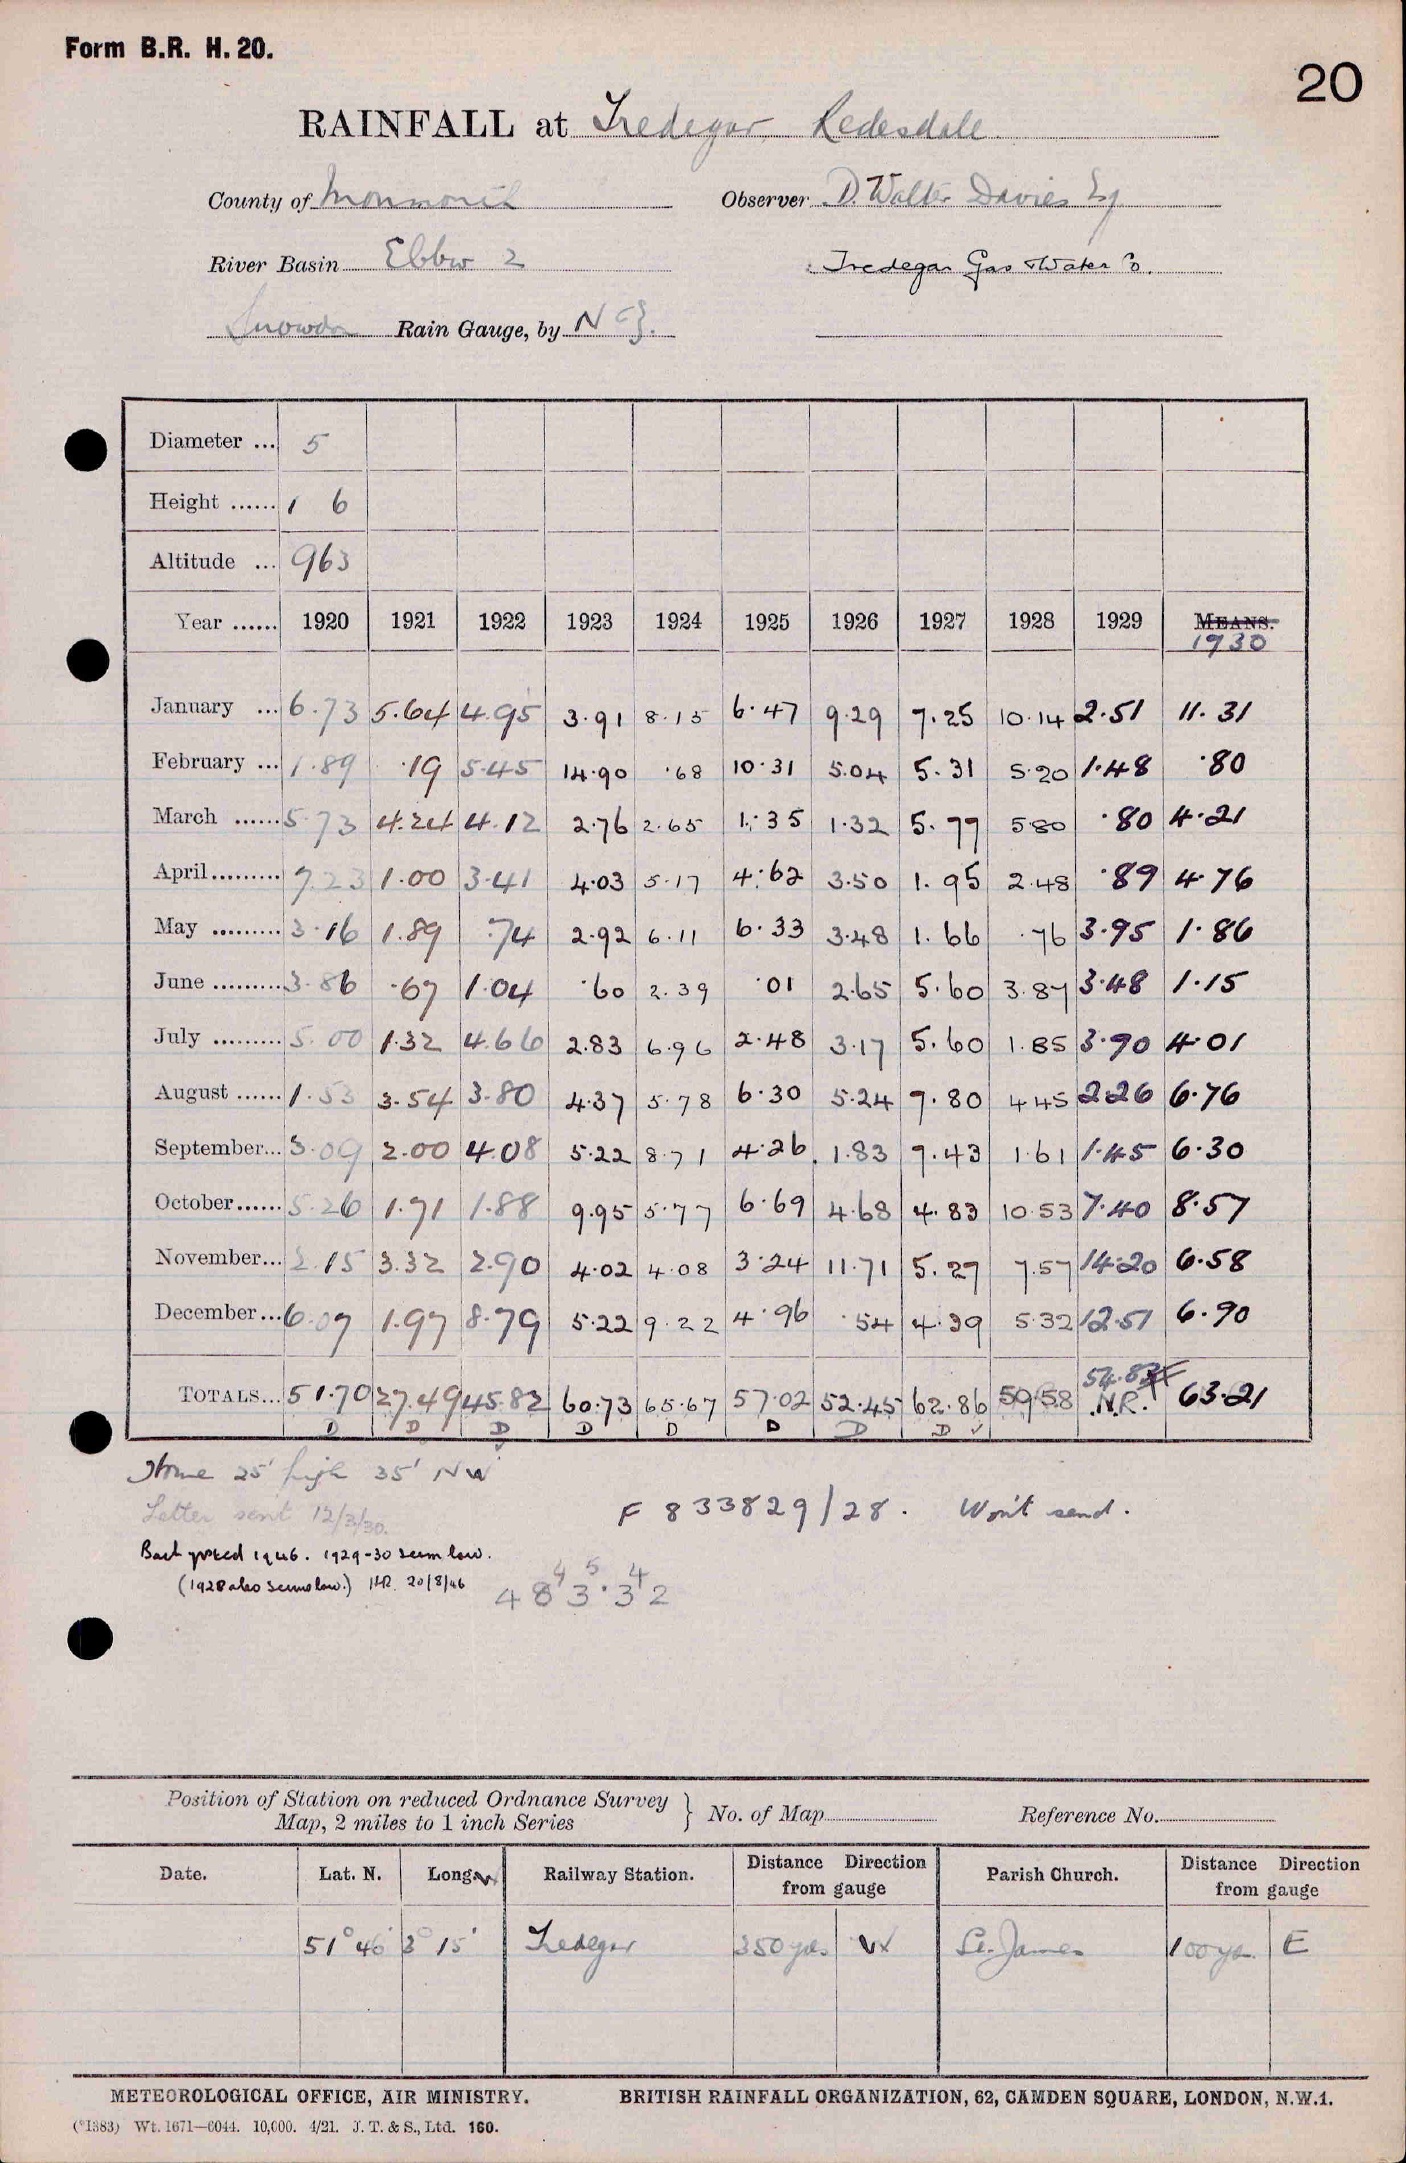 Form B.R. H. 20.
20
RAINFALL at Tredegar, Redesdale
County of Monmouth Observer D. Walter Davies Esq
River Basin Ebbw 2 Tredegar Gas & Water Co.
Snowdon Rain Gauge, by N & Z.
Diameter ... 5
Height ...... 1 6
Altitude ... 963
Year ...... 1920 1921 1922 1923 1924 1925 1926 1927 1928 1929 MEANS.
1930
January ... 6.73 5.64 4.95 3.91 8.15 6.47 9.29 7.25 10.14 2.51 11.31
February ... 1.89 .19 5.45 14.90 .68 10.31 5.04 5.31 5.20 1.48 .80
March ...... 5.73 4.24 4.12 2.76 2.65 1.35 1.32 5.77 5.80 .80 4.21
April......... 7.23 1.00 3.41 4.03 5.17 4.62 3.50 1.95 2.48 .89 4.76
May ......... 3.16 1.89 .74 2.92 6.11 6.33 3.48 1.66 .76 3.95 1.86
June ......... 3.86 .67 1.04 .60 2.39 .01 2.65 5.60 3.87 3.48 1.15
July ......... 5.00 1.32 4.66 2.83 6.96 2.48 3.17 5.60 1.85 3.90 4.01
August ...... 1.53 3.54 3.80 4.37 5.78 6.30 5.24 7.80 4.45 2.26 6.76
September... 3.09 2.00 4.08 5.22 8.71 4.26 1.83 7.43 1.61 1.45 6.30
October...... 5.26 1.71 1.88 9.95 5.77 6.69 4.68 4.83 10.53 7.40 8.57
November... 2.15 3.32 2.90 4.02 4.08 3.24 11.71 5.27 7.57 14.20 6.58
December... 6.07 1.97 8.79 5.22 9.22 4.96 .54 4.39 5.32 12.51 6.90
54.83
TOTALS... 51.70 27.49 45.82 60.73 65.67 57.02 52.45 62.86 59.58 N.R. 63.21
D D D D D D D D ✓
Home 25' high 35' NW
Letter sent 12/3/30.
F 833829/28. Won't send.
Back posted 1946. 1929-30 seem low.
(1928 also seems low.) 20/8/46
4 5 4
483.32
Position of Station on reduced Ordnance Survey
Map, 2 miles to 1 inch Series } No. of Map Reference No.
Date. Lat. N. Long. W Railway Station. Distance Direction from gauge Parish Church. Distance Direction from gauge
51° 46' 3° 15' Tredegar 350 yds W St. James 100 yds. E
METEOROLOGICAL OFFICE, AIR MINISTRY. BRITISH RAINFALL ORGANIZATION, 62, CAMDEN SQUARE, LONDON, N.W.1.
(*1383) Wt. 1671—6044. 10,000. 4/21. J. T. & S., Ltd. 160.